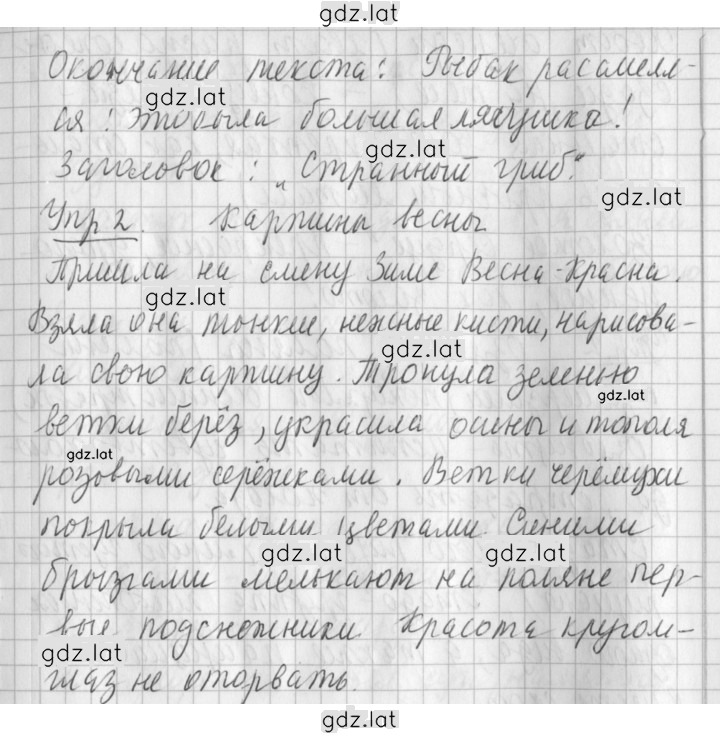 gdz.lat
Окончание текста: Рыбак рассмеял-
gdz.lat
ся: это была большая лягушка!
gdz.lat
Заголовок: „Странный гриб."
gdz.lat
Упр 2. Картины весны
Пришла на смену Зиме Весна-Красна.
gdz.lat
Взяла она тонкие, нежные кисти, нарисова-
gdz.lat
ла свою картину. Тронула зеленью
gdz.lat
ветки берёз, украсила осины и тополя
gdz.lat
розовыми серёжками. Ветки черёмухи
покрыла белыми цветами. Синими
gdz.lat gdz.lat
брызгами мелькают на поляне пер-
вые подснежники. Красота кругом-
gdz.lat
глаз не оторвать.
gdz.lat